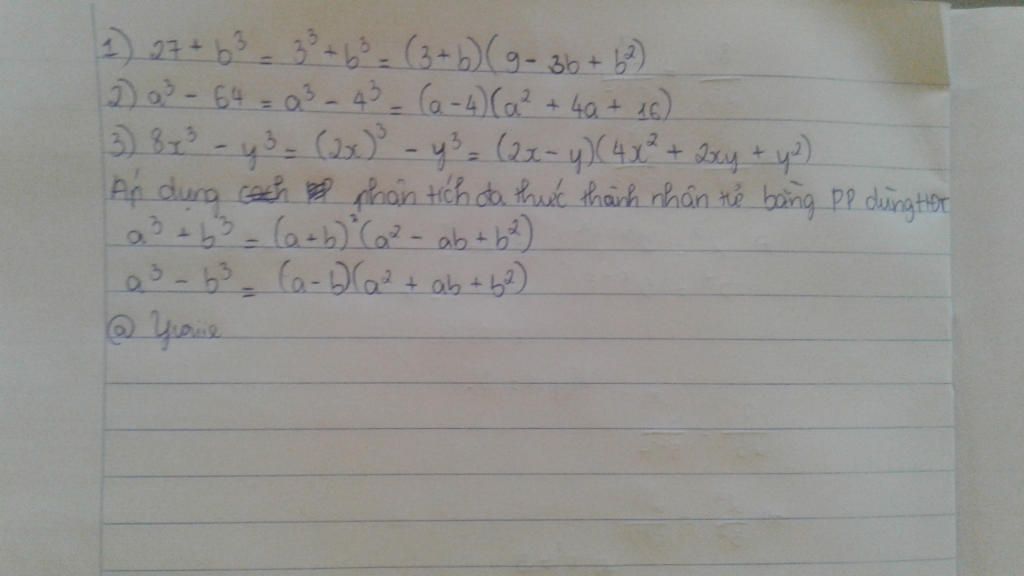 1) 27 + b³ = 3³ + b³ = (3 + b)(9 - 3b + b²)
2) a³ - 64 = a³ - 4³ = (a - 4)(a² + 4a + 16)
3) 8x³ - y³ = (2x)³ - y³ = (2x - y)(4x² + 2xy + y²)
Áp dụng phân tích đa thức thành nhân tử bằng PP dùng HĐT
a³ + b³ = (a+b)²(a² - ab + b²)
a³ - b³ = (a-b)(a² + ab + b²)
@